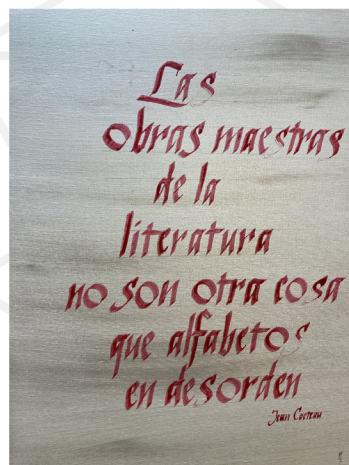 Las
obras maestras
de la
literatura
no son otra cosa
que alfabetos
en desorden
Jean Cocteau